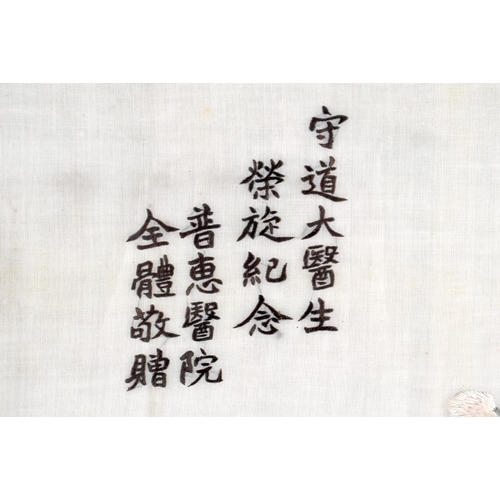 守道大醫生
榮旋紀念
普惠醫院
全體敬贈